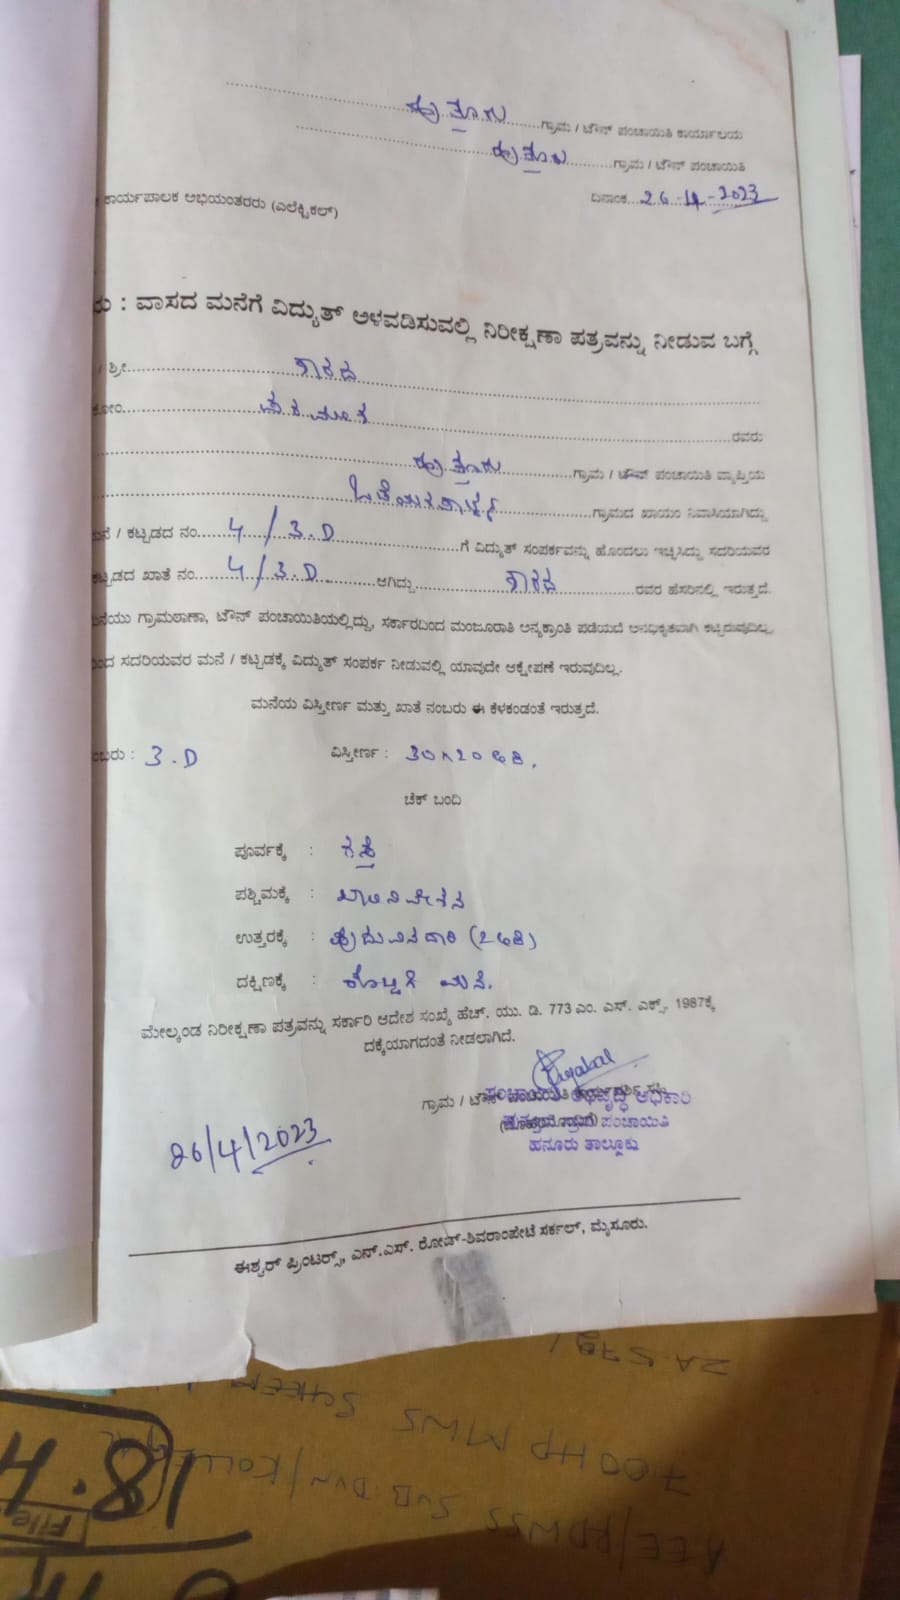 ಹುತ್ತೂರು ಗ್ರಾಮ / ಟೌನ್ ಪಂಚಾಯಿತಿ ಕಾರ್ಯಾಲಯ
ಹುತ್ತೂರು ಗ್ರಾಮ / ಟೌನ್ ಪಂಚಾಯಿತಿ
ಕಾರ್ಯಪಾಲಕ ಅಭಿಯಂತರರು (ಎಲೆಕ್ಟ್ರಿಕಲ್) ದಿನಾಂಕ 26-4-2023
: ವಾಸದ ಮನೆಗೆ ವಿದ್ಯುತ್ ಅಳವಡಿಸುವಲ್ಲಿ ನಿರೀಕ್ಷಣಾ ಪತ್ರವನ್ನು ನೀಡುವ ಬಗ್ಗೆ
/ ಶ್ರೀ ಶಾರದ
ಕೋಂ ರವರು
ಹುತ್ತೂರು ಗ್ರಾಮ / ಟೌನ್ ಪಂಚಾಯಿತಿ ವ್ಯಾಪ್ತಿಯ
ಒಡೆಯರಪಾಳ್ಯ ಗ್ರಾಮದ ಖಾಯಂ ನಿವಾಸಿಯಾಗಿದ್ದು
/ ಕಟ್ಟಡದ ನಂ. 4/3.D ಗೆ ವಿದ್ಯುತ್ ಸಂಪರ್ಕವನ್ನು ಹೊಂದಲು ಇಚ್ಛಿಸಿದ್ದು ಸದರಿಯವರ
ಕಟ್ಟಡದ ಖಾತೆ ನಂ. 4/3.D ಆಗಿದ್ದು ಶಾರದ ರವರ ಹೆಸರಿನಲ್ಲಿ ಇರುತ್ತದೆ.
ಗ್ರಾಮಠಾಣಾ, ಟೌನ್ ಪಂಚಾಯಿತಿಯಲ್ಲಿದ್ದು, ಸರ್ಕಾರದಿಂದ ಮಂಜೂರಾತಿ ಅನ್ಯಕ್ರಾಂತಿ ಪಡೆಯದೆ ಅನಧಿಕೃತವಾಗಿ ಕಟ್ಟಿರುವುದಿಲ್ಲ
ಸದರಿಯವರ ಮನೆ / ಕಟ್ಟಡಕ್ಕೆ ವಿದ್ಯುತ್ ಸಂಪರ್ಕ ನೀಡುವಲ್ಲಿ ಯಾವುದೇ ಆಕ್ಷೇಪಣೆ ಇರುವುದಿಲ್ಲ.
ಮನೆಯ ವಿಸ್ತೀರ್ಣ ಮತ್ತು ಖಾತೆ ನಂಬರು ಈ ಕೆಳಕಂಡಂತೆ ಇರುತ್ತದೆ.
: 3.D ವಿಸ್ತೀರ್ಣ : 30x20 ಅಡಿ.
ಚೆಕ್ ಬಂದಿ
ಪೂರ್ವಕ್ಕೆ : ರಸ್ತೆ
ಪಶ್ಚಿಮಕ್ಕೆ : ಖಾಲಿ ನಿವೇಶನ
ಉತ್ತರಕ್ಕೆ :
ದಕ್ಷಿಣಕ್ಕೆ : ಮನೆ.
ಮೇಲ್ಕಂಡ ನಿರೀಕ್ಷಣಾ ಪತ್ರವನ್ನು ಸರ್ಕಾರಿ ಆದೇಶ ಸಂಖ್ಯೆ ಹೆಚ್. ಯು. ಡಿ. 773 ಎಂ. ಎಸ್. ಎಕ್ಸ್. 1987ಕ್ಕೆ
ದಕ್ಕೆಯಾಗದಂತೆ ನೀಡಲಾಗಿದೆ.
ಗ್ರಾಮ / ಟೌನ್
ಪಂಚಾಯಿತಿ ಅಭಿವೃದ್ಧಿ ಅಧಿಕಾರಿ
ಗ್ರಾಮ ಪಂಚಾಯಿತಿ
ಹನೂರು ತಾಲ್ಲೂಕು
26/4/2023
ಈಶ್ವರ್ ಪ್ರಿಂಟರ್ಸ್, ಎನ್.ಎಸ್. ರೋಡ್-ಶಿವರಾಂಪೇಟೆ ಸರ್ಕಲ್, ಮೈಸೂರು.
AEE/RDWSS SUB DVN/KOLLEGAL
700 HP MWS SCHEEM
18.4
File